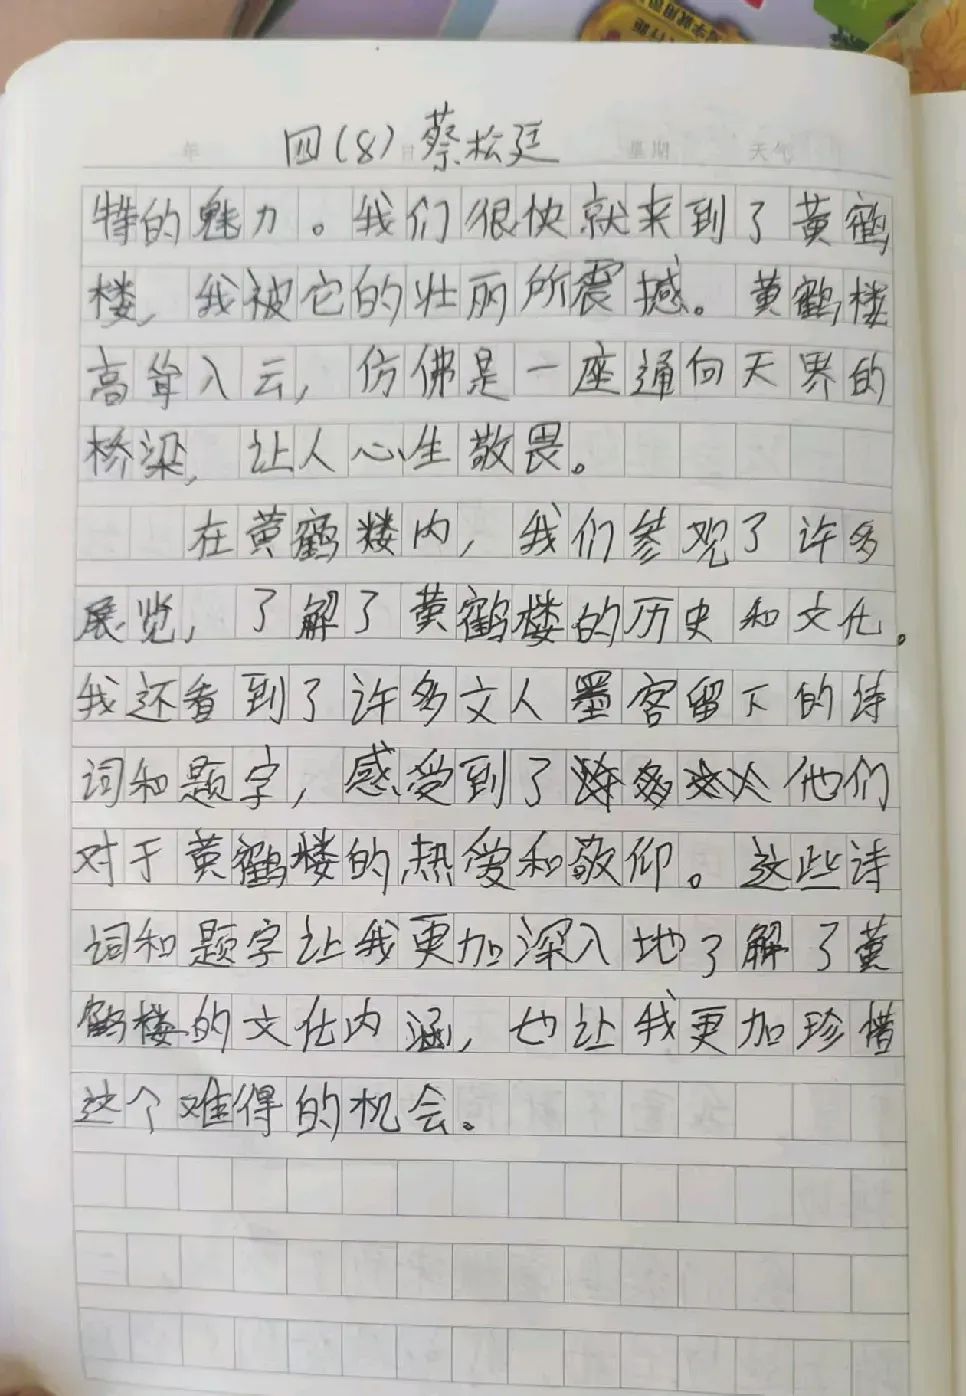 四(8) 蔡松廷
年 日 星期 天气
特的魅力。我们很快就来到了黄鹤
楼,我被它的壮丽所震撼。黄鹤楼
高耸入云,仿佛是一座通向天界的
桥梁,让人心生敬畏。
在黄鹤楼内,我们参观了许多
展览,了解了黄鹤楼的历史和文化。
我还看到了许多文人墨客留下的诗
词和题字,感受到了他们
对于黄鹤楼的热爱和敬仰。这些诗
词和题字让我更加深入地了解了黄
鹤楼的文化内涵,也让我更加珍惜
这个难得的机会。